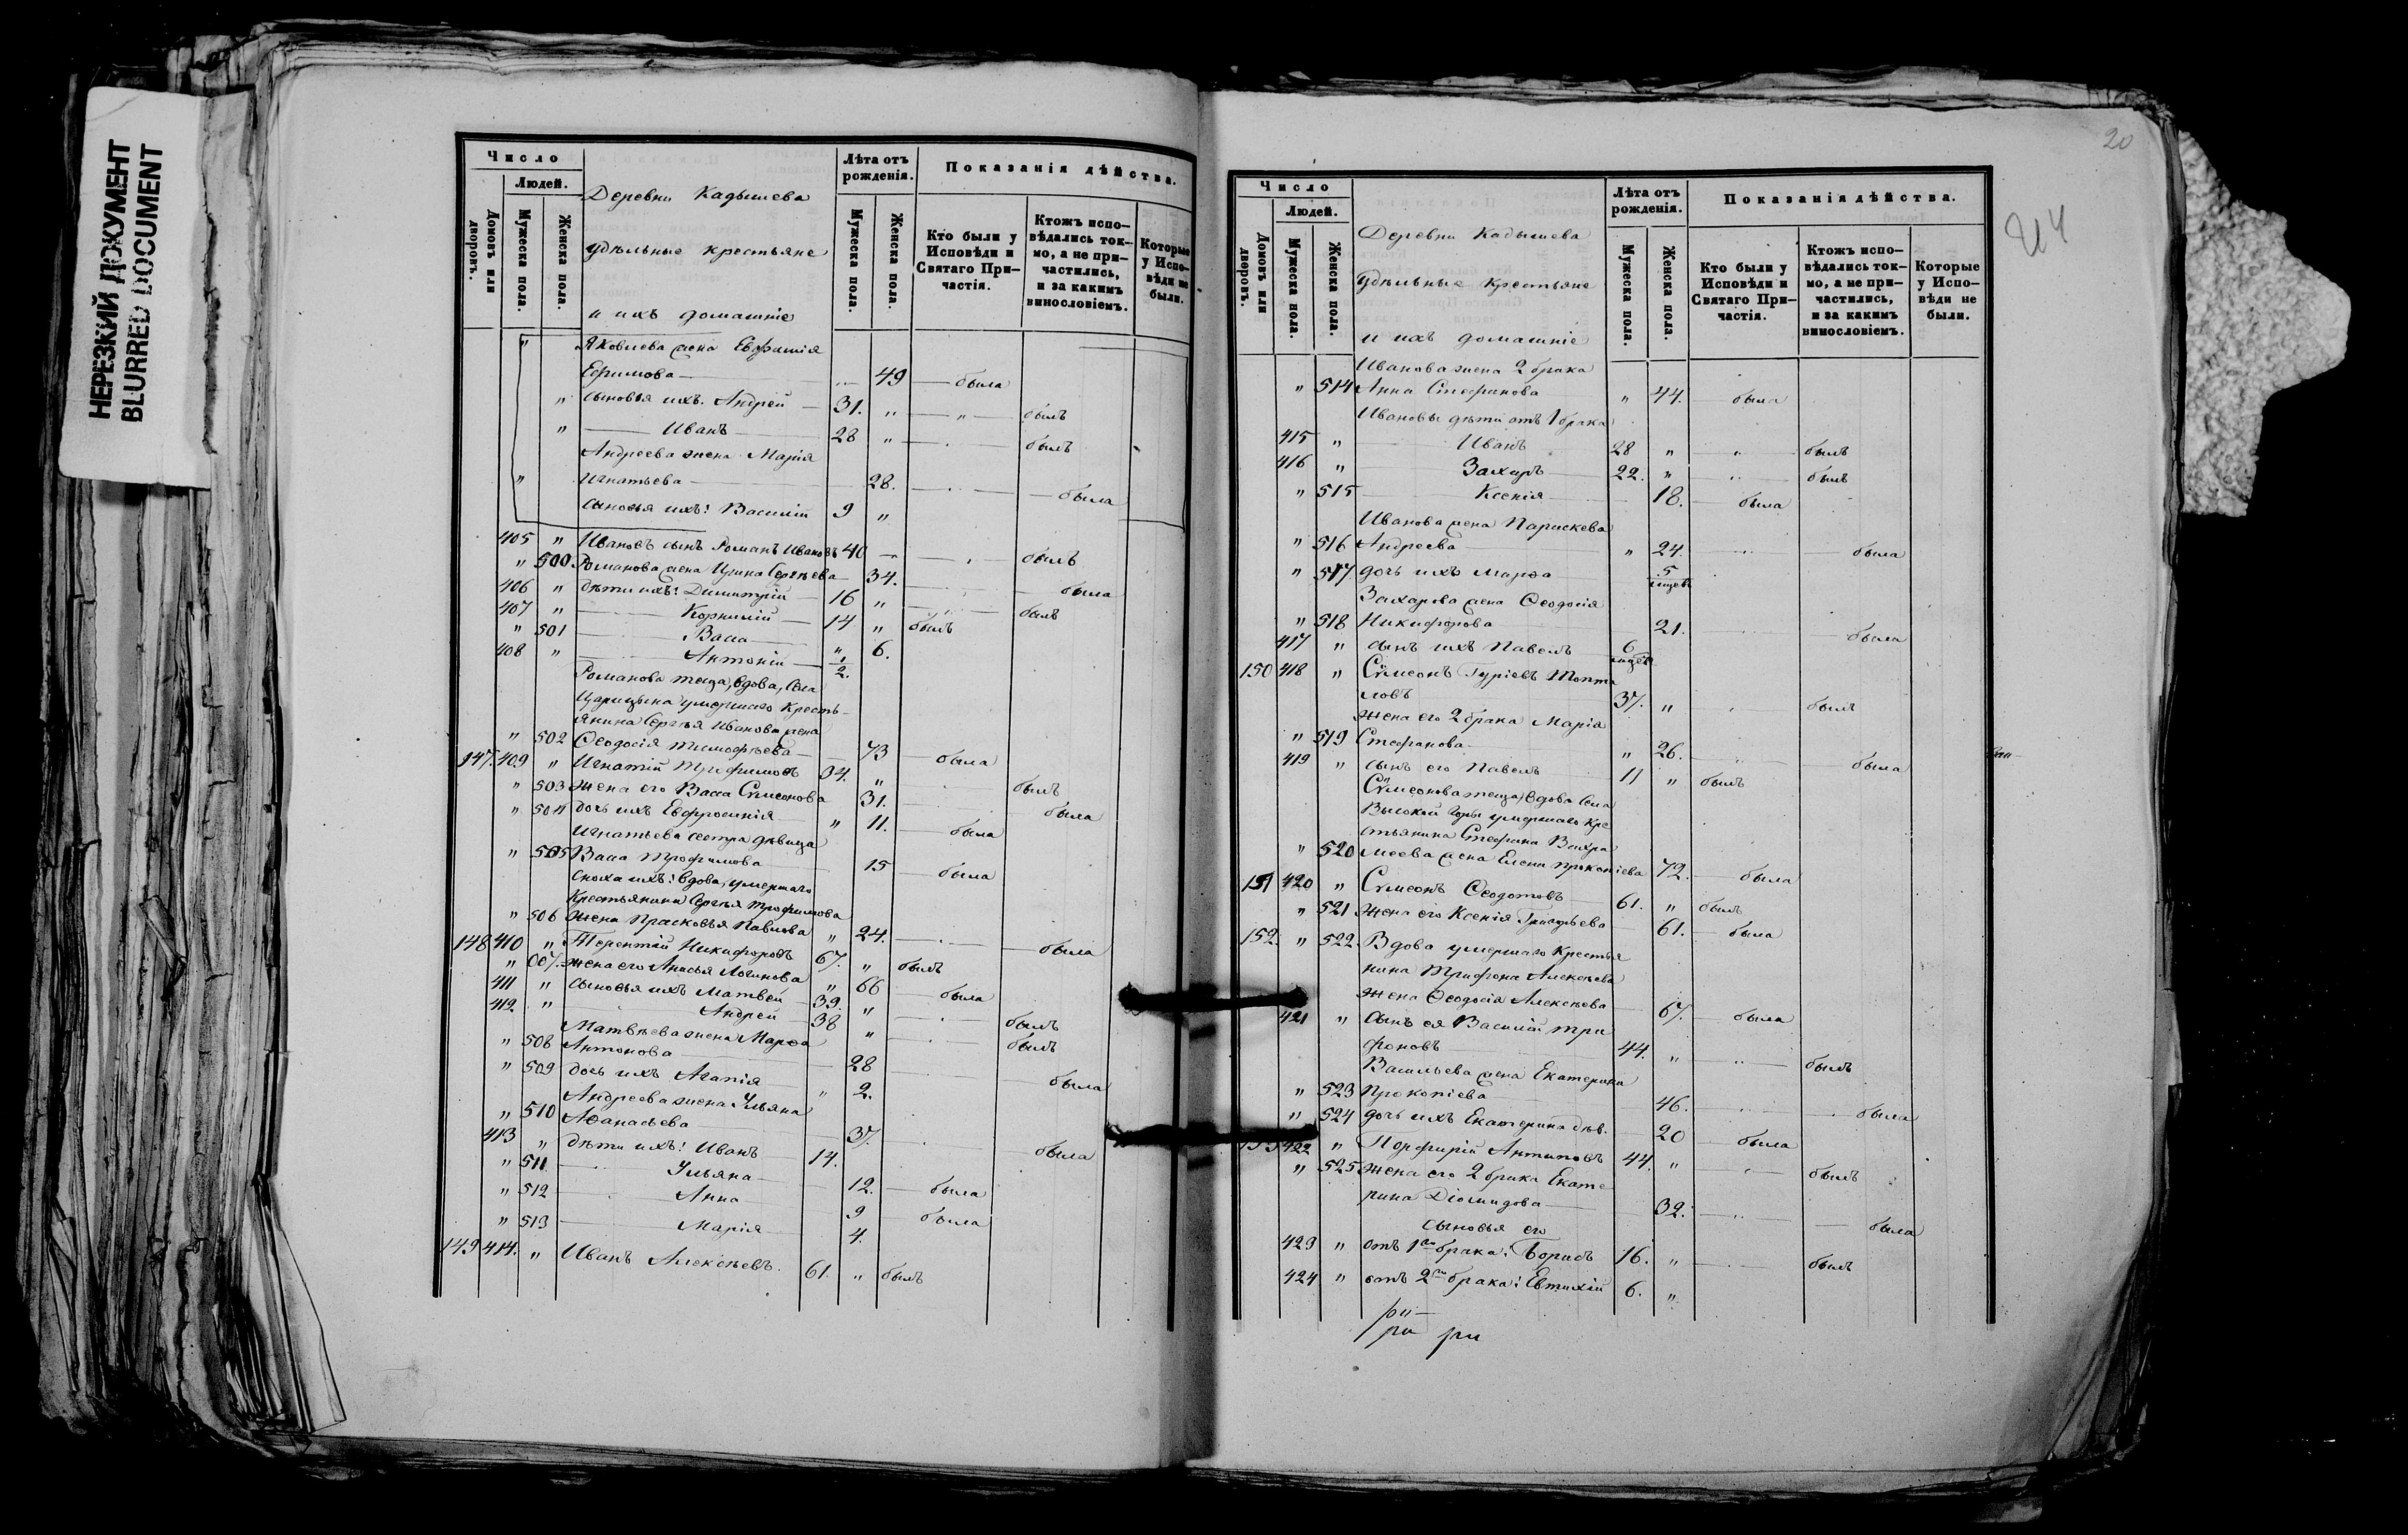 НЕРЕЗКИЙ ДОКУМЕНТ
BLURRED DOCUMENT
Число
Людей.
Домовъ или дворовъ.
Мужеска пола.
Женска пола.
Деревни Кадышева
удѣльные крестьяне
и ихъ домашніе
Лѣта отъ рожденія.
Мужеска пола.
Женска пола.
Показанія дѣйства.
Кто были у Исповѣди и Святаго Причастія.
Ктожъ исповѣдались токмо, а не причастились, и за какимъ винословіемъ.
Которые у Исповѣди не были.
" Яковлева жена
Ефимова 49 была
" сыновья ихъ. Андрей 31. " " былъ
" Иванъ 28 " былъ
Андреева жена Марія
" Игнатьева 28. была
сыновья ихъ: Василій 9 "
405 " Ивановъ сынъ Романъ Ивановъ 40 былъ
" 500 Романова жена Ирина Сергѣева 34. была
406 " дѣти ихъ: Димитрій 16 " былъ
407 " Корнилій 14 " былъ
" 501 Васса " 6.
408 " Антоній 1/2.
Романова теща, вдова, села
Царицына умершаго кресть-
янина Сергѣя Иванова жена
" 502 Ѳеодосія Тимофѣева 73 была
147. 409 " Игнатій Трофимовъ 34. " былъ
" 503 жена его Васса Сѵмеонова 31. была
" 504 дочь ихъ Евфросинія " 11. была
Игнатьева сестра дѣвица
" 505 Васса Трофимова 15 была
сноха ихъ: вдова, умершаго
крестьянина Сергѣя Трофимова
" 506 жена Прасковья Павлова " 24. была
148 410 " Терентій Никифоровъ 67. " былъ
" 507. жена его Анисья Логинова " 66 была
411 " сыновья ихъ Матвей 39. " былъ
412. " Андрей 38 " былъ
Матвѣева жена Марѳа
" 508 Антонова 28 была
" 509 дочь ихъ Агапія " 2.
Андреева жена Ульяна
" 510 Аѳанасьева 37. была
413 " дѣти ихъ: Иванъ 14.
" 511 Ульяна 12. была
" 512 Анна 9 была
" 513 Марія 4.
149 414. " Иванъ Алексѣевъ. 61. " былъ
20
Число
Людей.
Домовъ или дворовъ.
Мужеска пола.
Женска пола.
Деревни Кадышева
Удѣльные Крестьяне
и ихъ домашніе
Лѣта отъ рожденія.
Мужеска пола.
Женска пола.
Показанія дѣйства.
Кто были у Исповѣди и Святаго Причастія.
Ктожъ исповѣдались токмо, а не причастились, и за какимъ винословіемъ.
Которые у Исповѣди не были.
Иванова жена 2 брака
" 514 Анна Стефанова " 44. была
Ивановы дѣти отъ 1 брака
415 " Иванъ 28 " " былъ
416 " Захаръ 22. " " былъ
" 515 Ксенія 18. была
Иванова жена Параскева
" 516 Андреева " 24. была
" 517. дочь ихъ Марѳа 5
Захарова жена Ѳеодосія
" 518 Никифорова 21. была
417 " сынъ ихъ Павелъ 6
150 418 " Сѵмеонъ Гуріевъ Топта
ловъ 37. " былъ
жена его 2 брака Марія
" 519 Стефанова " 26. была
419 " сынъ его Павелъ 11 " былъ
Сѵмеонова теща, вдова села
Высокой Горы умершаго кре
стьянина Стефана
" 520 жена Елена Прокопіева 72. была
151 420 " Сѵмеонъ Ѳеодотовъ 61. " былъ
" 521 жена его Ксенія Григорьева 61. была
152. " 522. Вдова умершаго крестья
нина Трифона Алексѣева
жена Ѳеодосія Алексѣева 67. была
421 " сынъ ея Василій Три
фоновъ 44. " " былъ
Васильева жена Екатерина
" 523 Прокопіева 46. была
" 524 дочь ихъ Екатерина дѣв. 20 была
153 422 " Порфирій Антиповъ 44. " былъ
" 525 жена его 2 брака Екате-
рина Діомидова 32. " была
сыновья его
423 " отъ 1го брака: Борисъ 16. " былъ
424 " отъ 2го брака: Евтихій 6. "